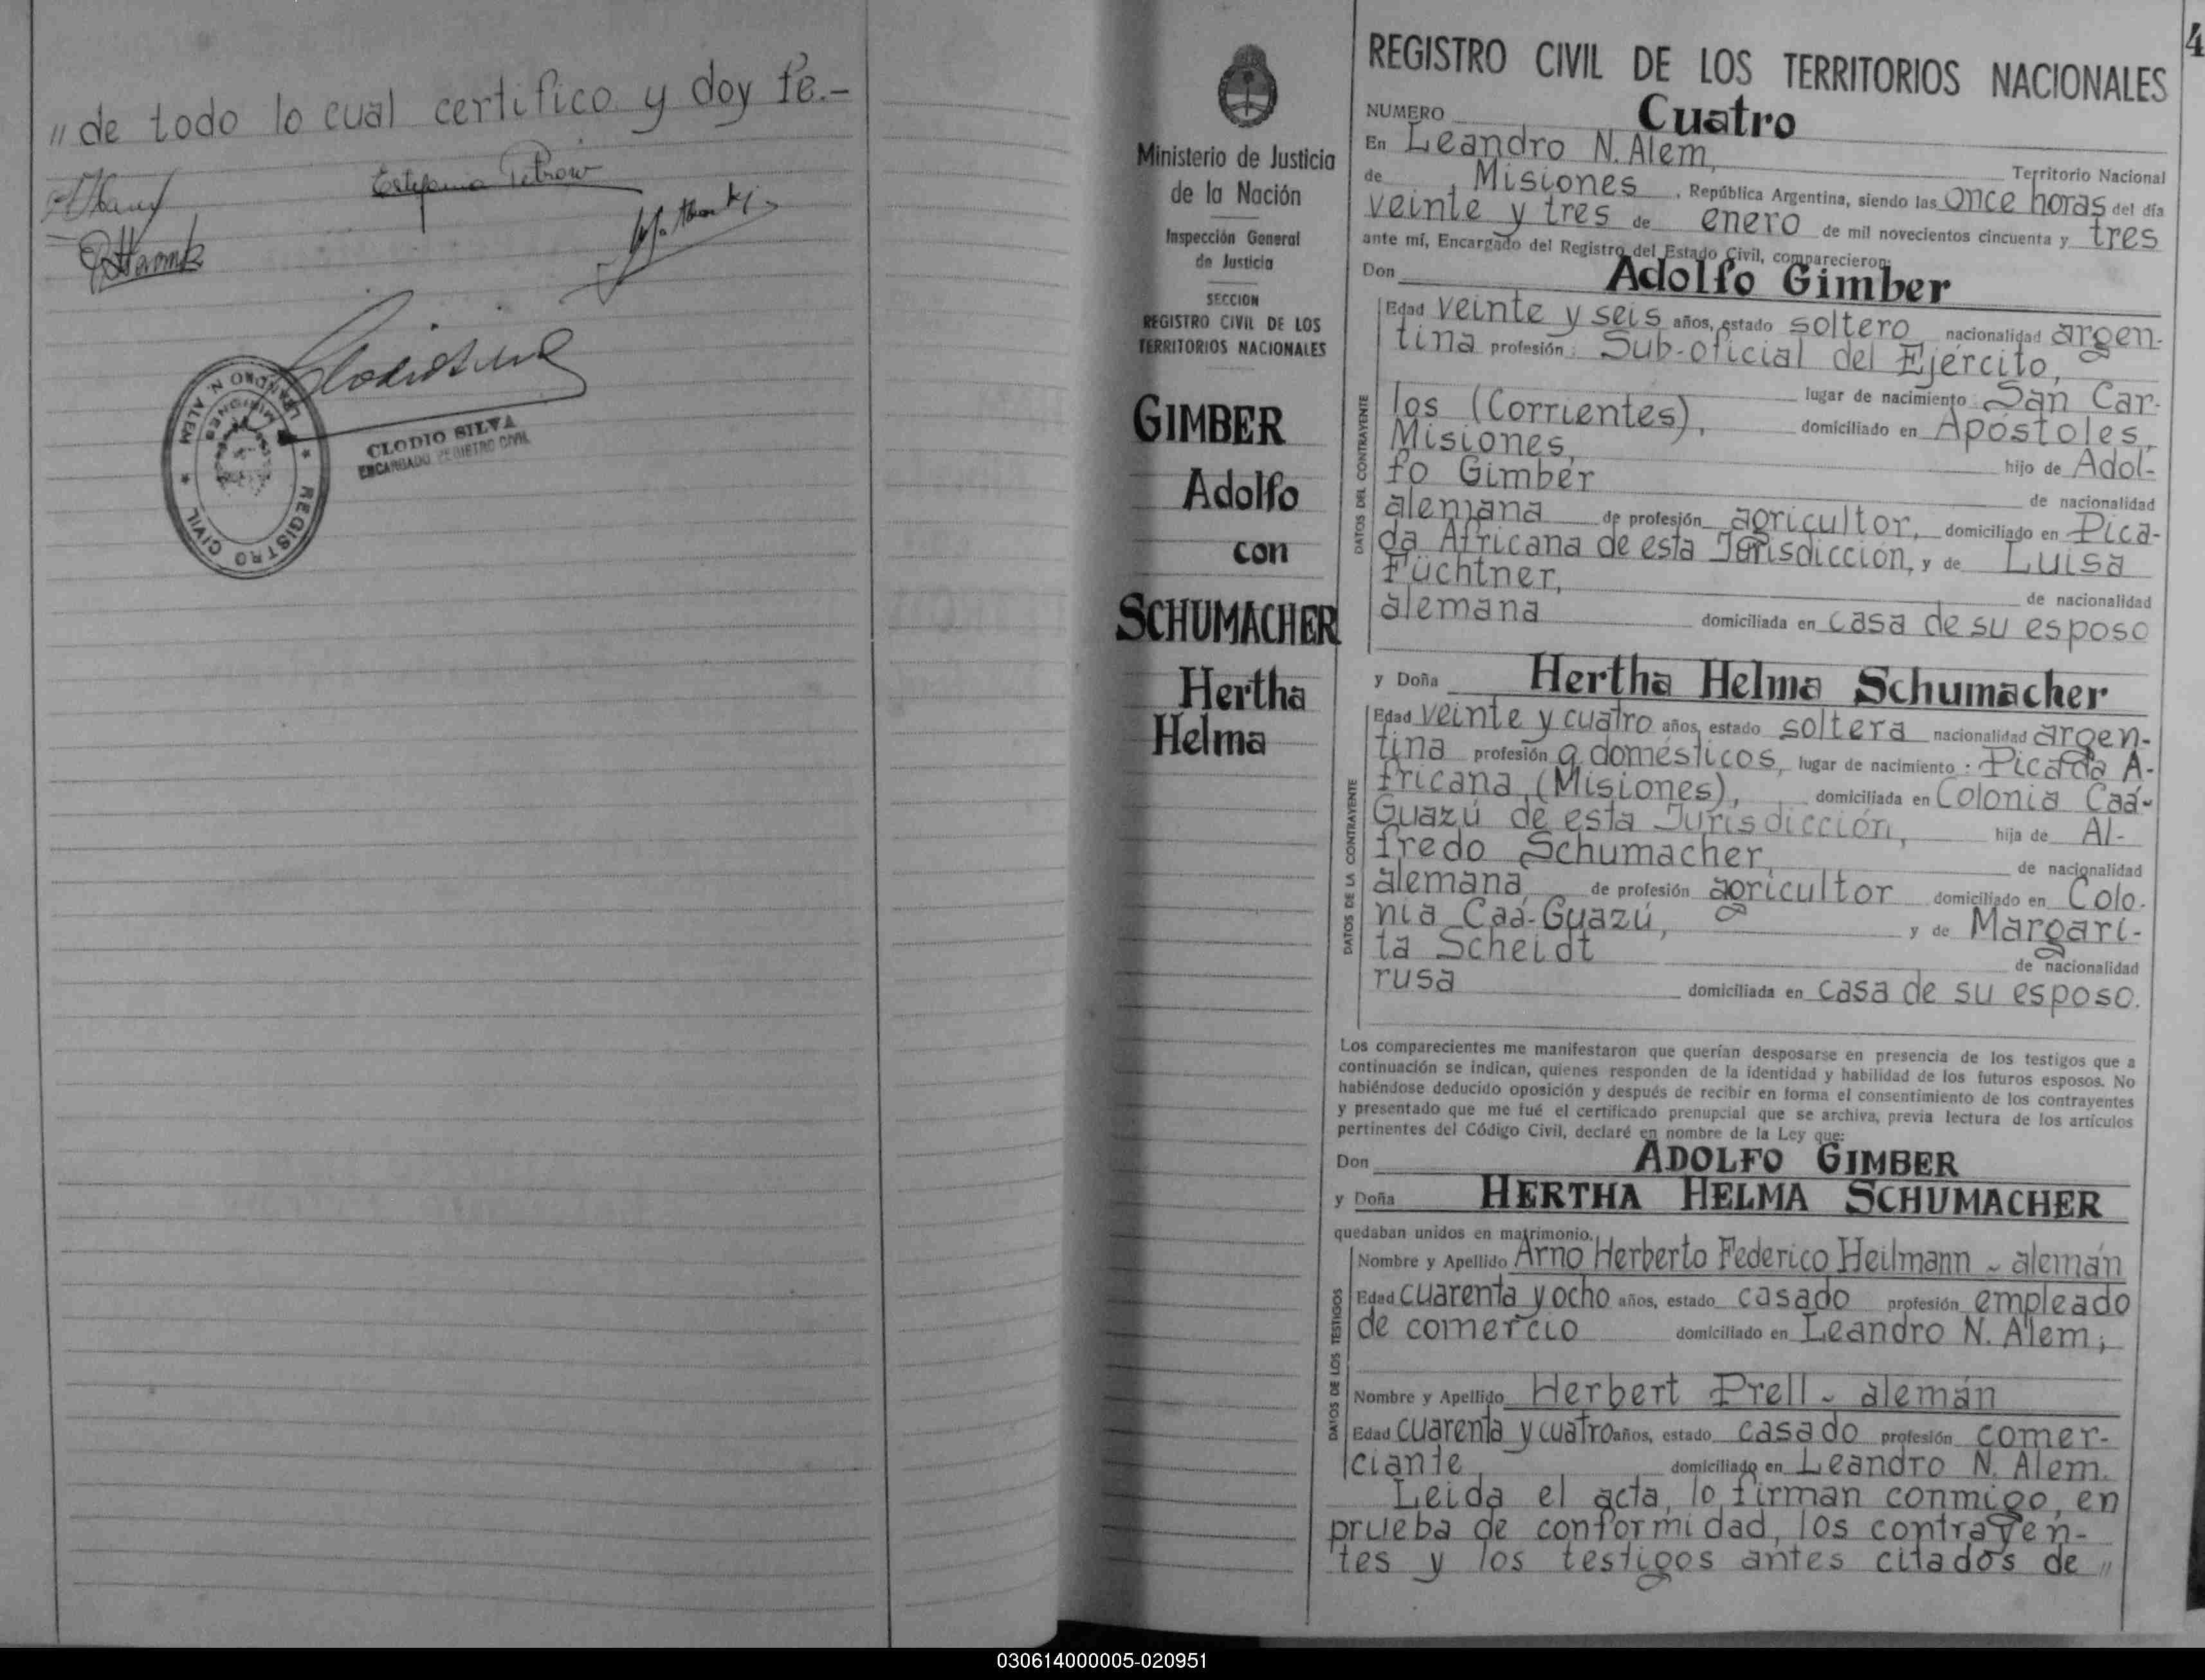 " de todo lo cual certifico y doy fe.-
Estefania Petrow
LEANDRO N. ALEM
MISIONES
REGISTRO CIVIL
CLODIO SILVA
ENCARGADO REGISTRO CIVIL
4
Ministerio de Justicia
de la Nación
Inspección General
de Justicia
SECCION
REGISTRO CIVIL DE LOS
TERRITORIOS NACIONALES
GIMBER
Adolfo
con
SCHUMACHER
Hertha
Helma
REGISTRO CIVIL DE LOS TERRITORIOS NACIONALES
NUMERO Cuatro
En Leandro N. Alem, Territorio Nacional
de Misiones, República Argentina, siendo las once horas del día
veinte y tres de enero de mil novecientos cincuenta y tres
ante mí, Encargado del Registro del Estado Civil, comparecieron:
Don Adolfo Gimber
DATOS DEL CONTRAYENTE
Edad veinte y seis años, estado soltero nacionalidad argen-
tina profesión: Sub-oficial del Ejército,
lugar de nacimiento: San Car-
los (Corrientes), domiciliado en Apóstoles,
Misiones, hijo de Adol-
fo Gimber de nacionalidad
alemana de profesión agricultor, domiciliado en Pica-
da Africana de esta Jurisdicción, y de Luisa
Füchtner, de nacionalidad
alemana domiciliada en casa de su esposo
y Doña Hertha Helma Schumacher
DATOS DE LA CONTRAYENTE
Edad veinte y cuatro años, estado soltera nacionalidad argen-
tina profesión q. domésticos, lugar de nacimiento: Picada A-
fricana, (Misiones), domiciliada en Colonia Caá-
Guazú de esta Jurisdicción, hija de Al-
fredo Schumacher, de nacionalidad
alemana de profesión agricultor domiciliado en Colo-
nia Caá-Guazú, y de Margari-
ta Scheidt de nacionalidad
rusa domiciliada en casa de su esposo.
Los comparecientes me manifestaron que querían desposarse en presencia de los testigos que a
continuación se indican, quienes responden de la identidad y habilidad de los futuros esposos. No
habiéndose deducido oposición y después de recibir en forma el consentimiento de los contrayentes
y presentado que me fué el certificado prenupcial que se archiva, previa lectura de los artículos
pertinentes del Código Civil, declaré en nombre de la Ley que:
Don ADOLFO GIMBER
y Doña HERTHA HELMA SCHUMACHER
quedaban unidos en matrimonio.
DATOS DE LOS TESTIGOS
Nombre y Apellido Arno Herberto Federico Heilmann - alemán
Edad cuarenta y ocho años, estado casado profesión empleado
de comercio domiciliado en Leandro N. Alem;
Nombre y Apellido Herbert Prell - alemán
Edad cuarenta y cuatro años, estado casado profesión comer-
ciante domiciliado en Leandro N. Alem.
Leida el acta, lo firman conmigo, en
prueba de conformidad, los contrayen-
tes y los testigos antes citados de "
030614000005-020951